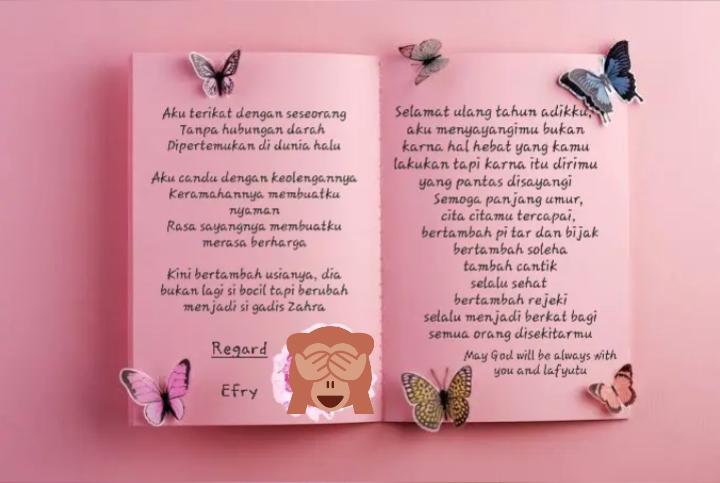 Aku terikat dengan seseorang
Tanpa hubungan darah
Dipertemukan di dunia halu
Aku candu dengan keolengannya
Keramahannya membuatku
nyaman
Rasa sayangnya membuatku
merasa berharga
Kini bertambah usianya, dia
bukan lagi si bocil tapi berubah
menjadi si gadis Zahra
Regard
Efry
Selamat ulang tahun adikku,
aku menyayangimu bukan
karna hal hebat yang kamu
lakukan tapi karna itu dirimu
yang pantas disayangi
Semoga panjang umur,
cita citamu tercapai,
bertambah pi tar dan bijak
bertambah soleha
tambah cantik
selalu sehat
bertambah rejeki
selalu menjadi berkat bagi
semua orang disekitarmu
May God will be always with
you and lafyutu